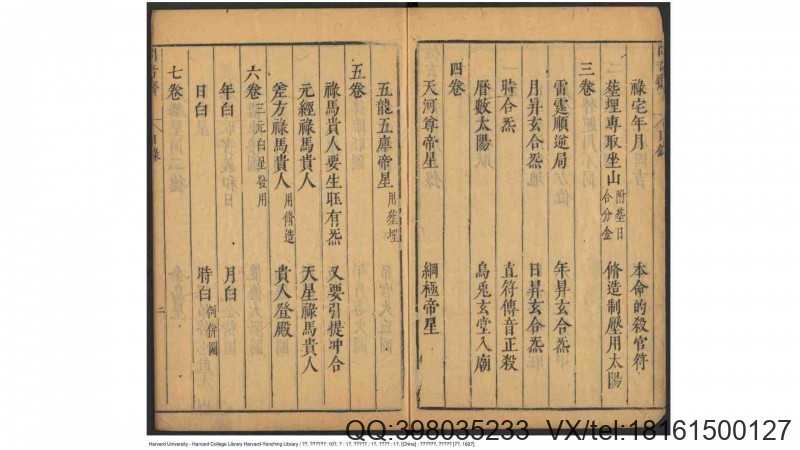 祿宅年月
本命的殺官符
塟埋專取坐山 附塟日合分金
修造制壓用太陽
三卷
雷霆順逆局
年昇玄合炁
月昇玄合炁
日昇玄合炁
時合炁
直符傳音正殺
曆數太陽
烏兎玄堂入廟
四卷
天河尊帝星
綱極帝星
五龍五庫帝星 用塟埋
五卷
祿馬貴人要生旺有炁
又要引提冲合
元經祿馬貴人
天星祿馬貴人
差方祿馬貴人 用修造
貴人登殿
六卷 三元白星發用
年白
月白
日白
時白
七卷
目錄
二
QQ:398035233 VX/tel:18161500127
Harvard University - Harvard College Library Harvard-Yenching Library